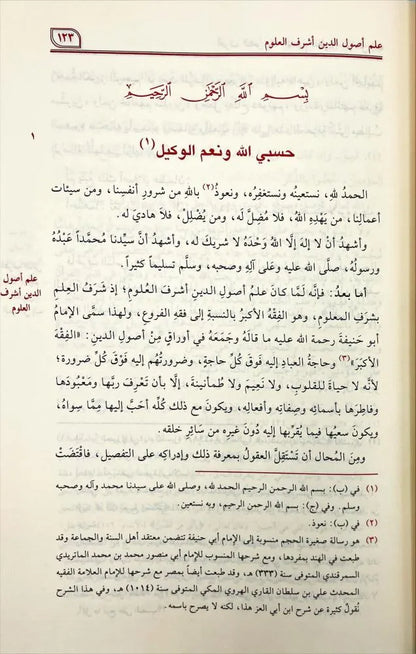 علم أصول الدين أشرف العلوم
١٢٣
بِسْمِ اللهِ الرَّحْمٰنِ الرَّحِيمِ
١
حسبي الله ونعم الوكيل(١)
الحمدُ للهِ، نستعينُه ونستغفِرُه، ونعوذُ(٢) باللهِ من شرورِ أنفسِنا، ومن سيئات
أعمالِنا، من يَهْدِهِ اللهُ، فلا مُضِلَّ له، ومن يُضْلِلْ، فلا هاديَ له.
وأشهدُ أنْ لا إلهَ إلَّا اللهُ وَحْدَهُ لا شريكَ له، وأشهدُ أنَّ سيِّدنا مُحمَّداً عَبْدُهُ
ورسولُهُ، صلَّى الله عليه وعَلَى آلِهِ وصحبِه، وسلَّم تسليماً كثيراً.
علم أصول
الدين أشرف
العلوم
أما بعدُ: فإنَّه لمَّا كانَ علمُ أصولِ الدينِ أشرفَ العُلومِ؛ إذ شَرَفُ العِلمِ
بشرفِ المعلومِ، وهو الفِقْهُ الأكبرُ بالنسبةِ إلى فقهِ الفروعِ، ولهذا سمَّى الإمامُ
أبو حَنيفةَ رحمة الله عليه ما قالَهُ وجَمَعَهُ في أوراقٍ مِنْ أصولِ الدين: «الفِقْهَ
الأكبَرَ»(٣) وحاجةُ العبادِ إليه فوقَ كُلِّ حاجةٍ، وضرورتُهُم إليهِ فَوْقَ كُلِّ ضرورة؛
لأنَّه لا حياةَ للقلوبِ، ولا نعيمَ ولا طُمأنينةَ، إلَّا بأن تَعْرِفَ ربَّها ومَعْبُودَها
وفاطِرَها بأسمائِهِ وصِفاتِهِ وأفعالِهِ، ويكونَ مع ذلك كُلِّه أحبَّ إليها مِمَّا سِواهُ،
ويكونَ سعيُها فيما يُقَرِّبُها إليهِ دُونَ غيرِه من سَائِرِ خلقِه.
ومِنَ المُحالِ أن تَسْتَقِلَّ العقولُ بمعرفةِ ذلك وإدراكِه على التفصيلِ، فاقْتَضَتْ
(١) في (ب): بسم الله الرحمن الرحيم الحمد لله، وصلى الله على سيدنا محمد وآله وصحبه
وسلم. وفي (ج): بسم الله الرحمن الرحيم، وبه نستعين.
(٢) في (ب): نعوذ.
(٣) هو رسالة صغيرة الحجم منسوبة إلى الإمام أبي حنيفة تتضمن معتقد أهل السنة والجماعة وقد
طبعت في الهند بمفردها، ومع شرحها المنسوب للإمام أبي منصور محمد بن محمد الماتريدي
السمرقندي المتوفى سنة (٣٣٣) هـ، وقد طبعت أيضاً بمصر مع شرحها للإمام العلامة الفقيه
المحدث علي بن سلطان القاري الهروي المكي المتوفى سنة (١٠١٤) هـ، وفي هذا الشرح
نُقولٌ كثيرة عن شرح ابن أبي العز هذا، لكنه لا يصرح باسمه.